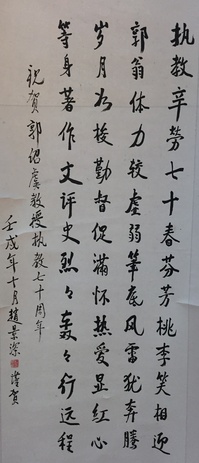 执教辛劳七十春芬芳桃李笑相迎
郭翁体力较虚弱笔底风雷犹奔腾
岁月如梭勤督促满怀热爱显红心
等身著作文评史烈々轰々行远程
祝贺郭绍虞教授执教七十周年
壬戌年十月赵景深谨贺